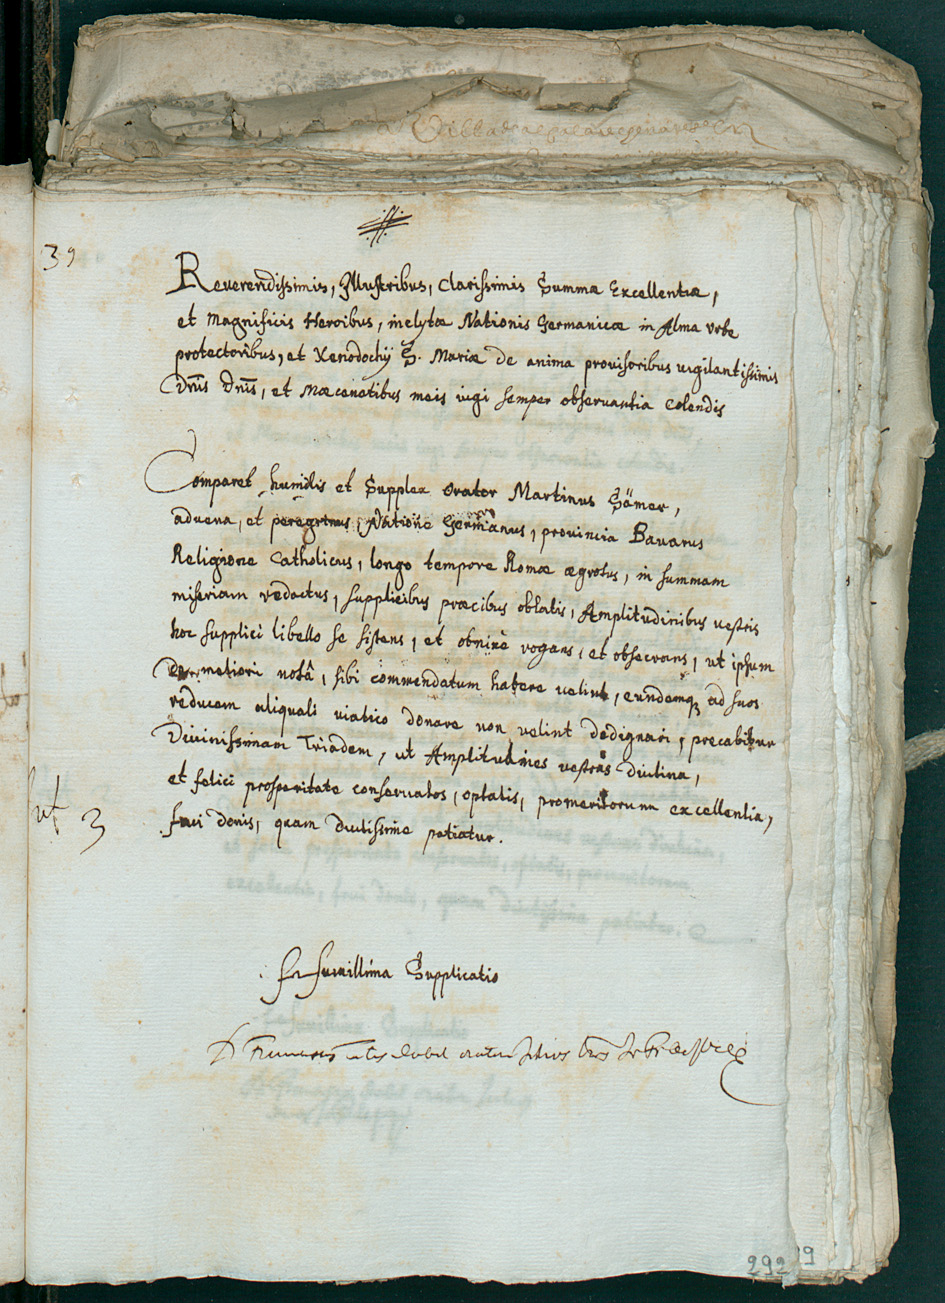 39
Reverendissimis, Illustribus, Clarissimis Summæ Excellentiæ,
et Magnificis Heroibus, inclytæ Nationis Germanicæ in Alma Urbe
protectoribus, et Xenodochÿ S. Mariæ de anima provisoribus vigilantissimis
Dnis Dnis, et Mæcenatibus meis vigi semper observantia colendis
Comparet humilis et Supplex orator Martinus Sömer,
advena, et peregrinus, Natione Germanus, provincia Bavarus
Religione Catholicus, longo tempore Romæ ægrotus, in summam
miseriam redactus, supplicibus præcibus oblatis, Amplitudinibus vestris
hoc supplici libello se sistens, et obnixè rogans, et obsecrans, ut ipsum
de meliori notâ, sibi commendatum habere velint, eundemq ad suos
reducem aliquali viatico donare non velint dedignari, precabitur
Divinissimam Triadem, ut Amplitudines vestras diutina,
et felici prosperitate conservatos, optatis, promeritorum excellentia,
frui donis, quam diutissime patiatur.
3
humillima Supplicatio
292